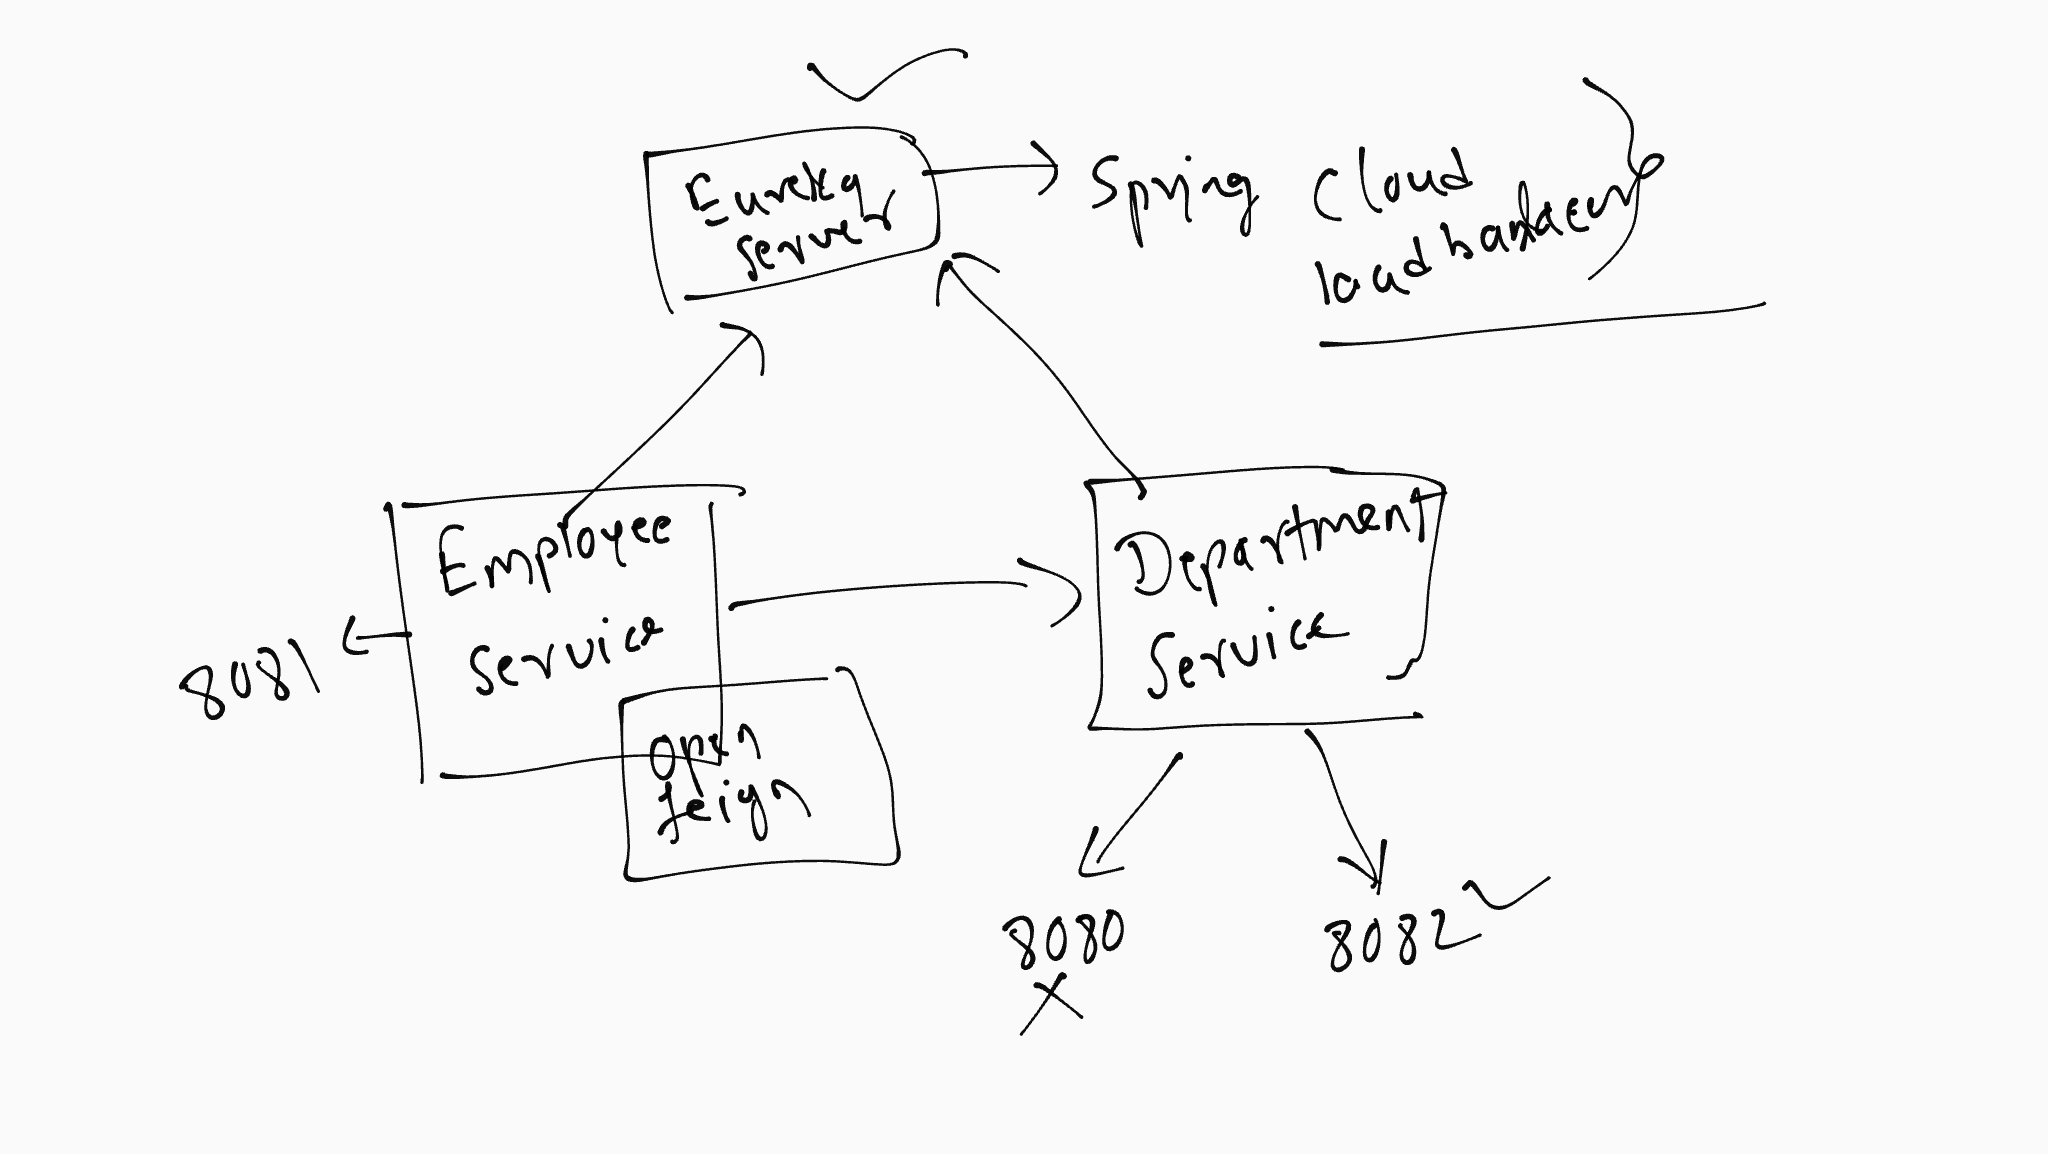 Eureka
server
Spring Cloud
load
Employee
service
8081
open
feign
Department
Service
8080
8082